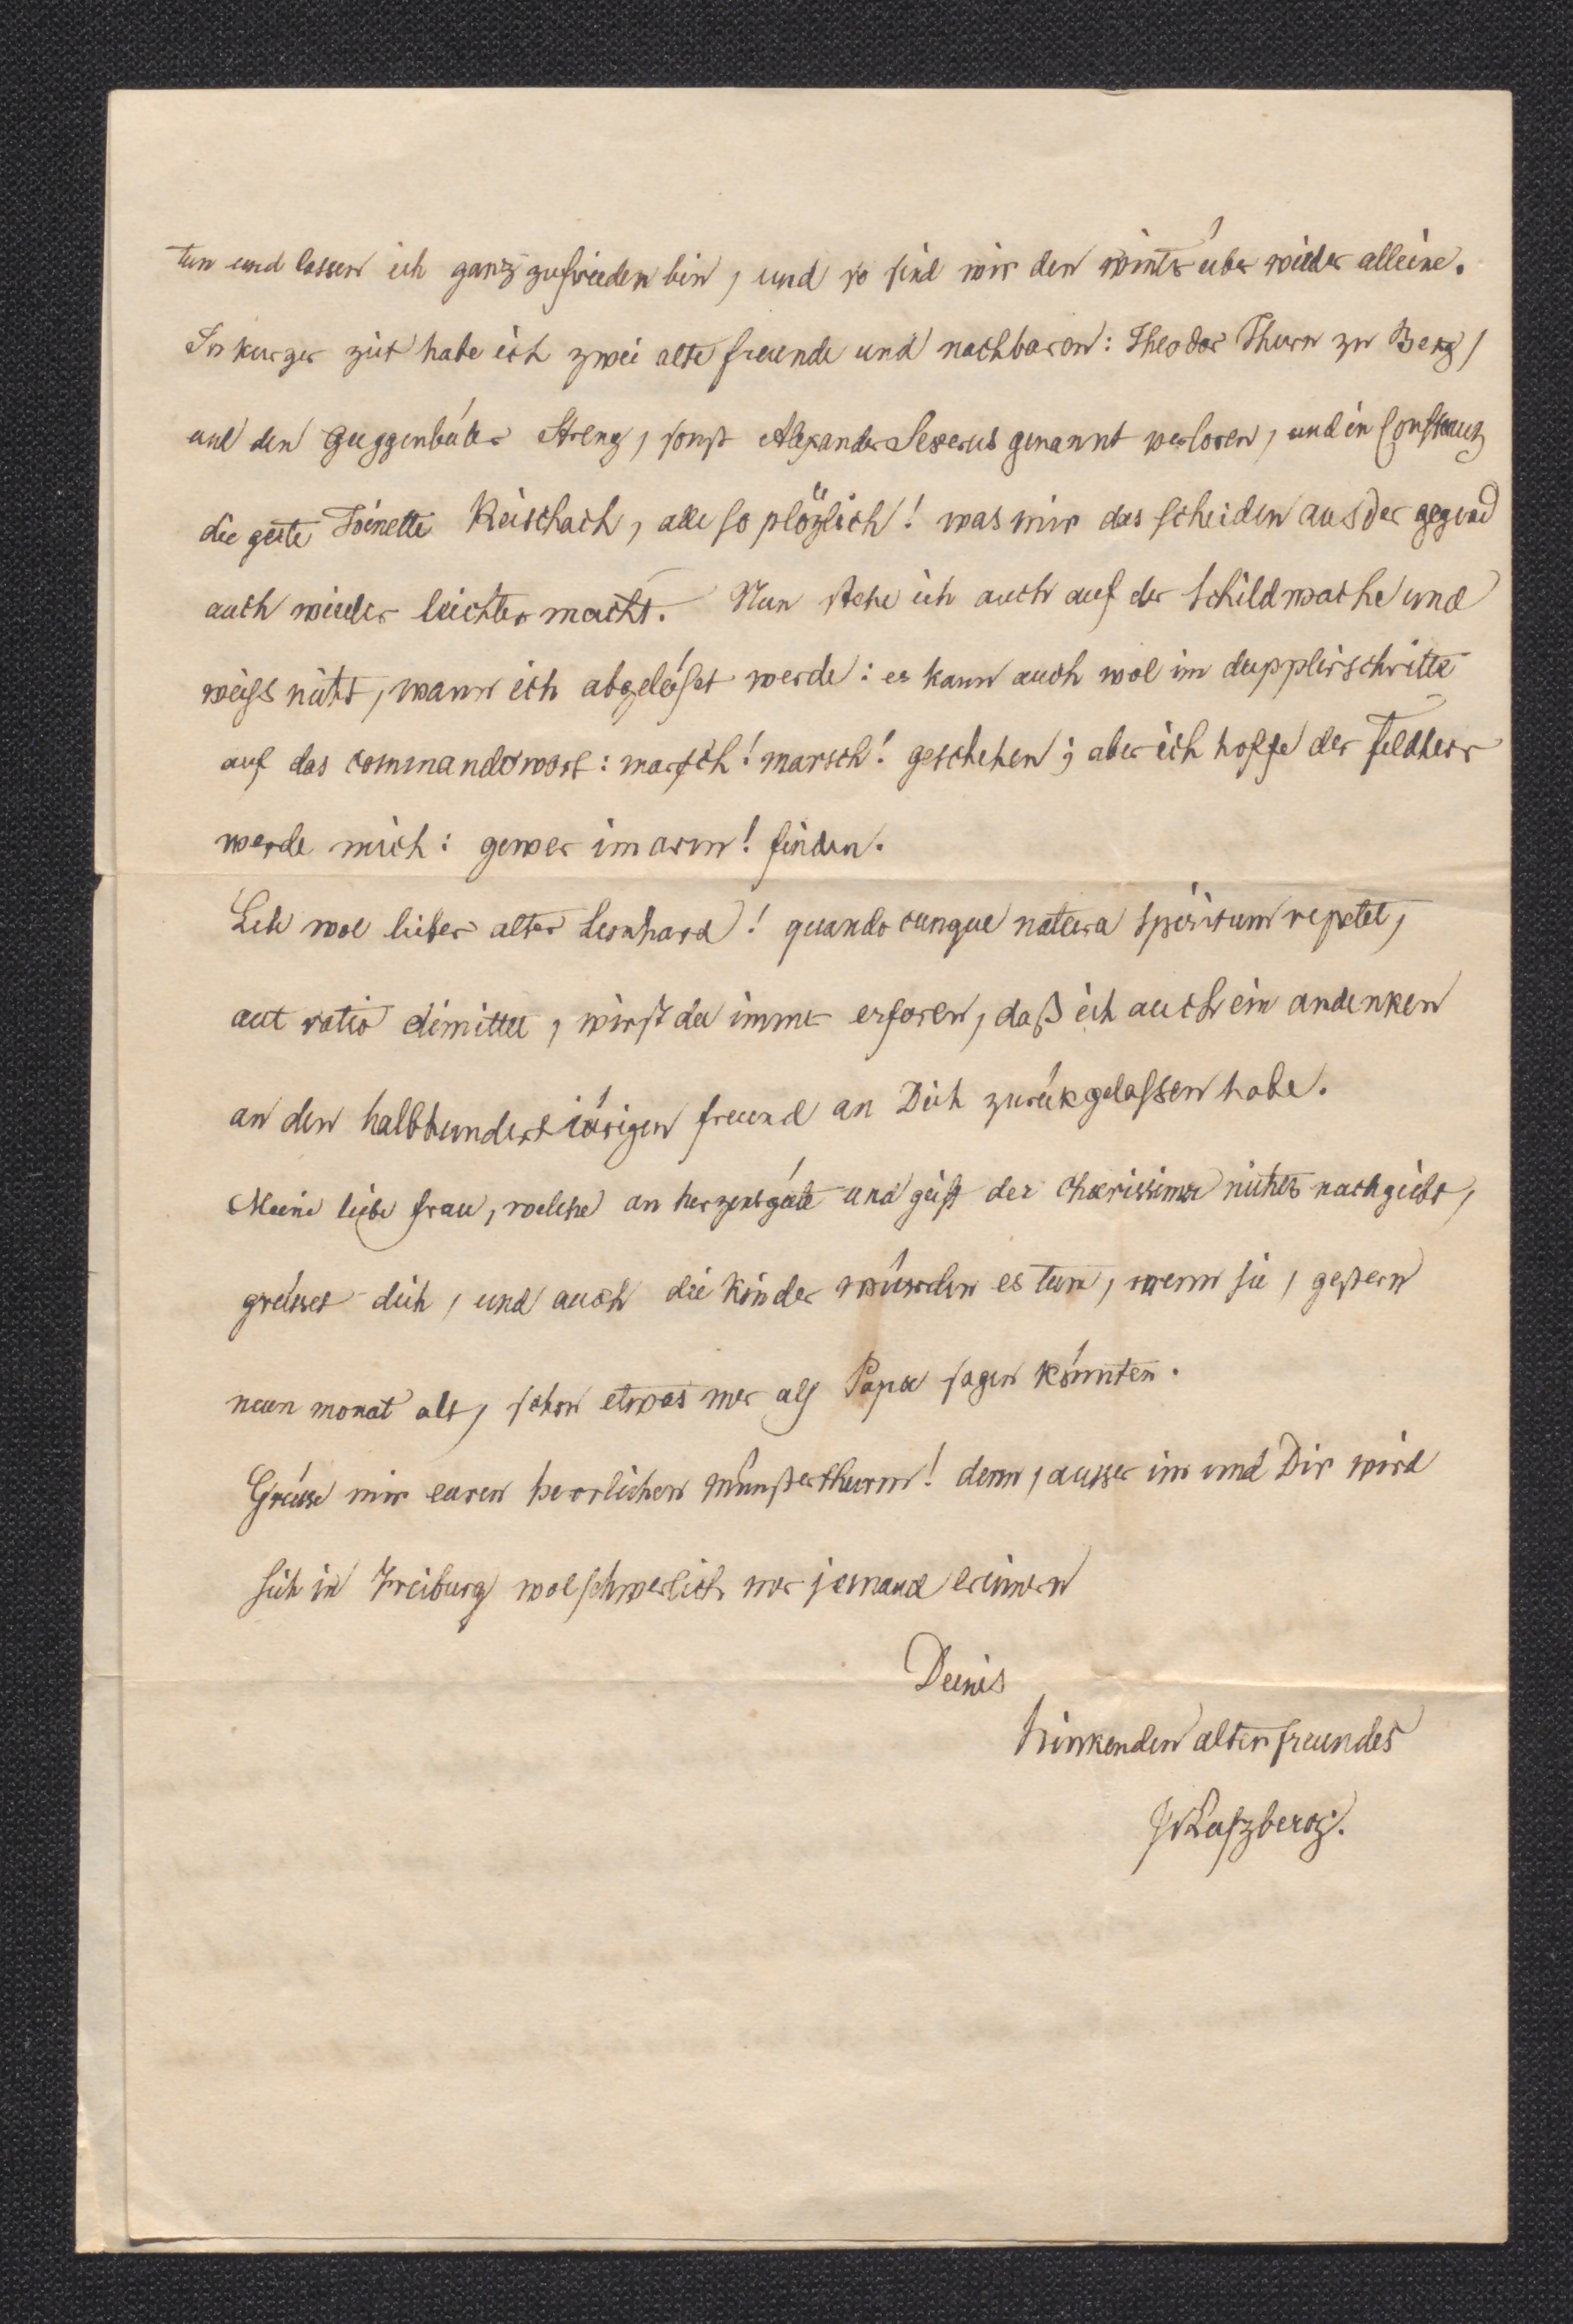 tun und lassen ich ganz zufrieden bin, und so sind wir den winter über wieder alleine.
In kurzer zeit habe ich zwei alte freunde und nachbaren: Theodor Thurn zu Berg,
und den Guggenbüler Streng, sonst Alexander Severus genannt verloren, und in Constanz
die gute Toinette Reischach, alle so plözlich! was mir das scheiden aus der gegend
auch wieder leichter macht. Nun stehe ich auch auf der schildwache und
weiss nicht, wann ich abgelöset werde: es kann auch wol im dupplirschritte
auf das commandowort: marsch! marsch! geschehen; aber ich hoffe der feldherr
werde mich: gewer im arm! finden.
Leb wol lieber alter Leonhard! quandocunque natura spiritum repetet,
aut ratio dimittet, wirst du immer erfaren, daß ich auch ein andenken
an den halbhundertiärigen freund an Dich zurükgelassen habe.
Meine liebe frau, welche an herzensgüte und geist der charissimæ nichts nachgiebt,
grüsset dich, und auch die kinder würden es tun, wenn sie, gestern
neun monat alt, schon etwas mer als Papa sagen könnten.
Grüsse mir euren herrlichen münsterthurm! denn, ausser im und Dir wird
sich in Freiburg wol schwerlich mer jemand erinnern
Deines
hinkenden alten freundes
JvLaszberg.